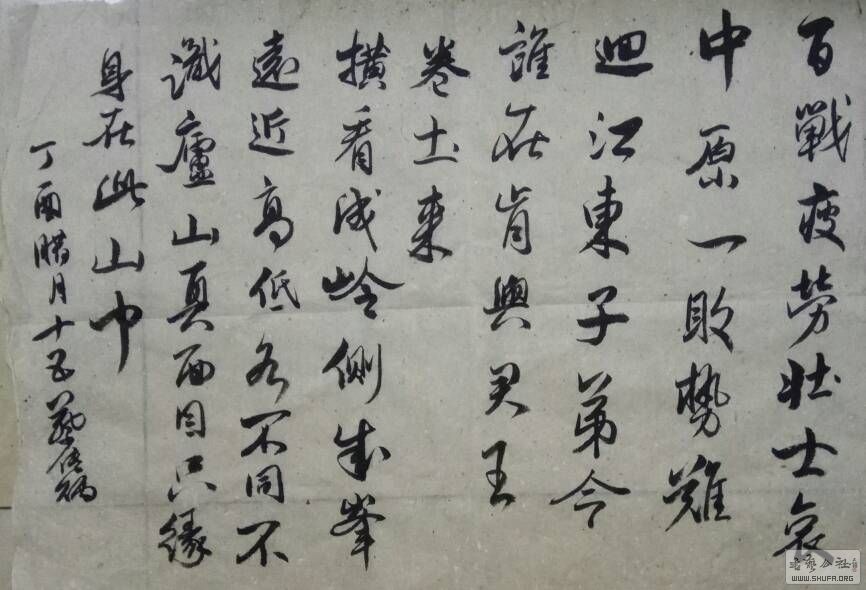 百戰疲勞壯士哀
中原一敗勢難
迴江東子弟今
誰在肯與君王
卷土來
横看成岭側成峯
遠近高低各不同不
識廬山真面目只緣
身在此山中
丁酉腊月十五
书艺公社
WWW.SHUFA.ORG